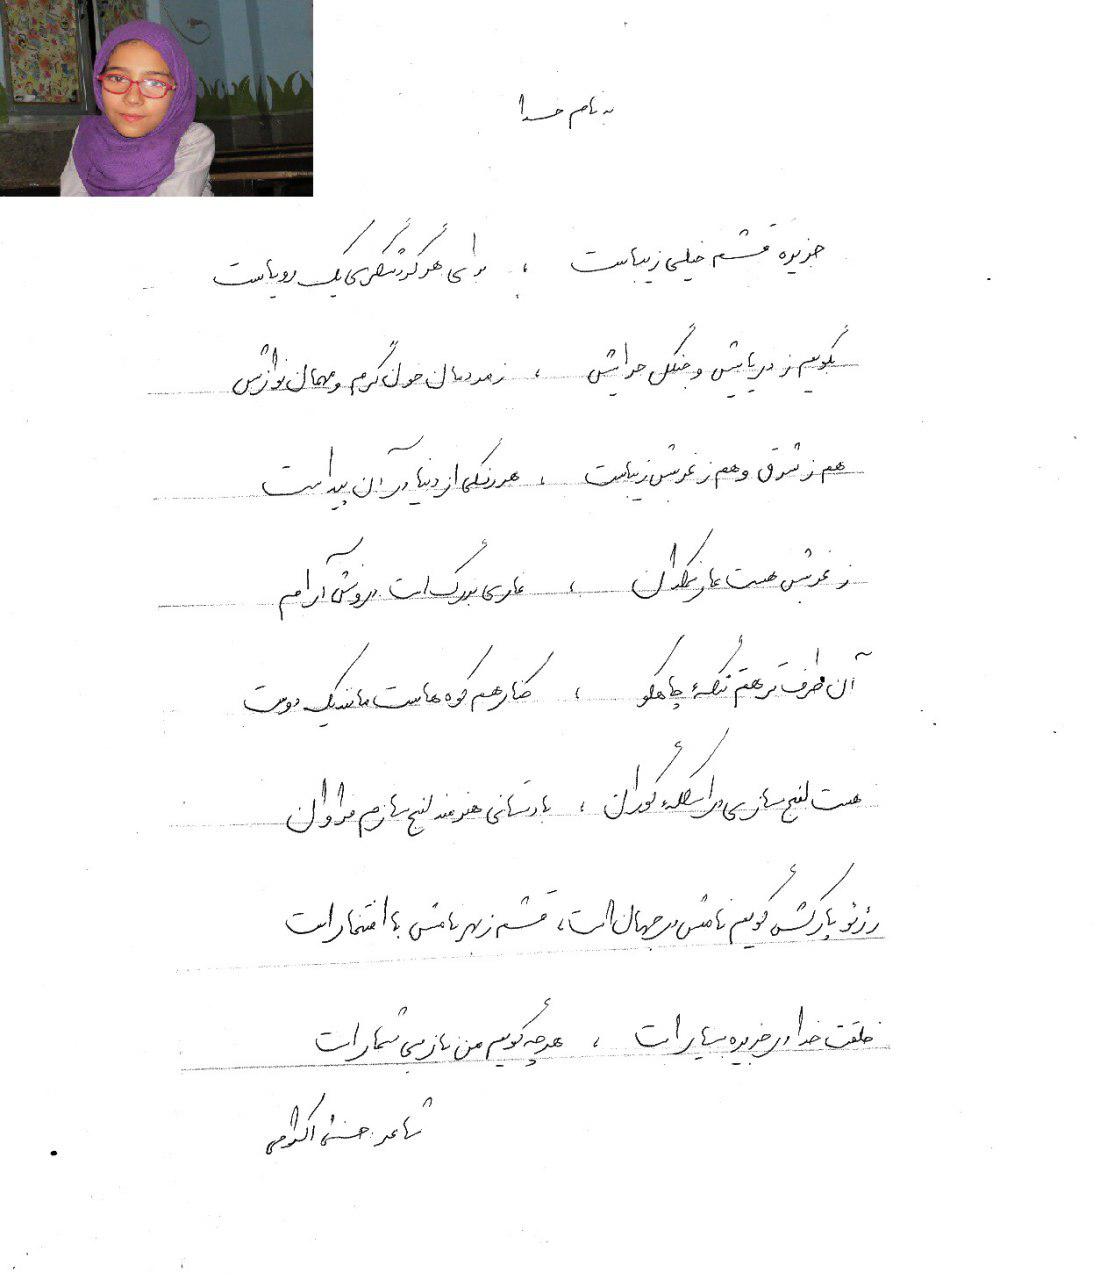 به نام خدا
جزیره قشم خیلی زیباست ، برای هر گردشگری یک رویاست
بگویم ز دریایش و جنگل حرایش ، ز مردمان خون گرم و مهمان نوازش
هم ز شرق و هم ز غربش زیباست ، هر رنگی از دنیا در آن پیداست
ز غربش هست غار نمکدان ، غاری بزرگ است درونش آرام
آن طرف تر هم تنگهٔ چاهکو ، کنار هم کوه هاست مانند یک دوست
هست لنج سازی در اسکلهٔ گوران ، با دستانی هنرمند لنج سازم فراوان
ژئو پارکش گویم نامش در جهان است ، قشم ز بهر نامش با افتخار است
خلقت خدا در جزیره بسیار است ، هر چه گویم من باز بی شمار است
شاعر: اکرامی